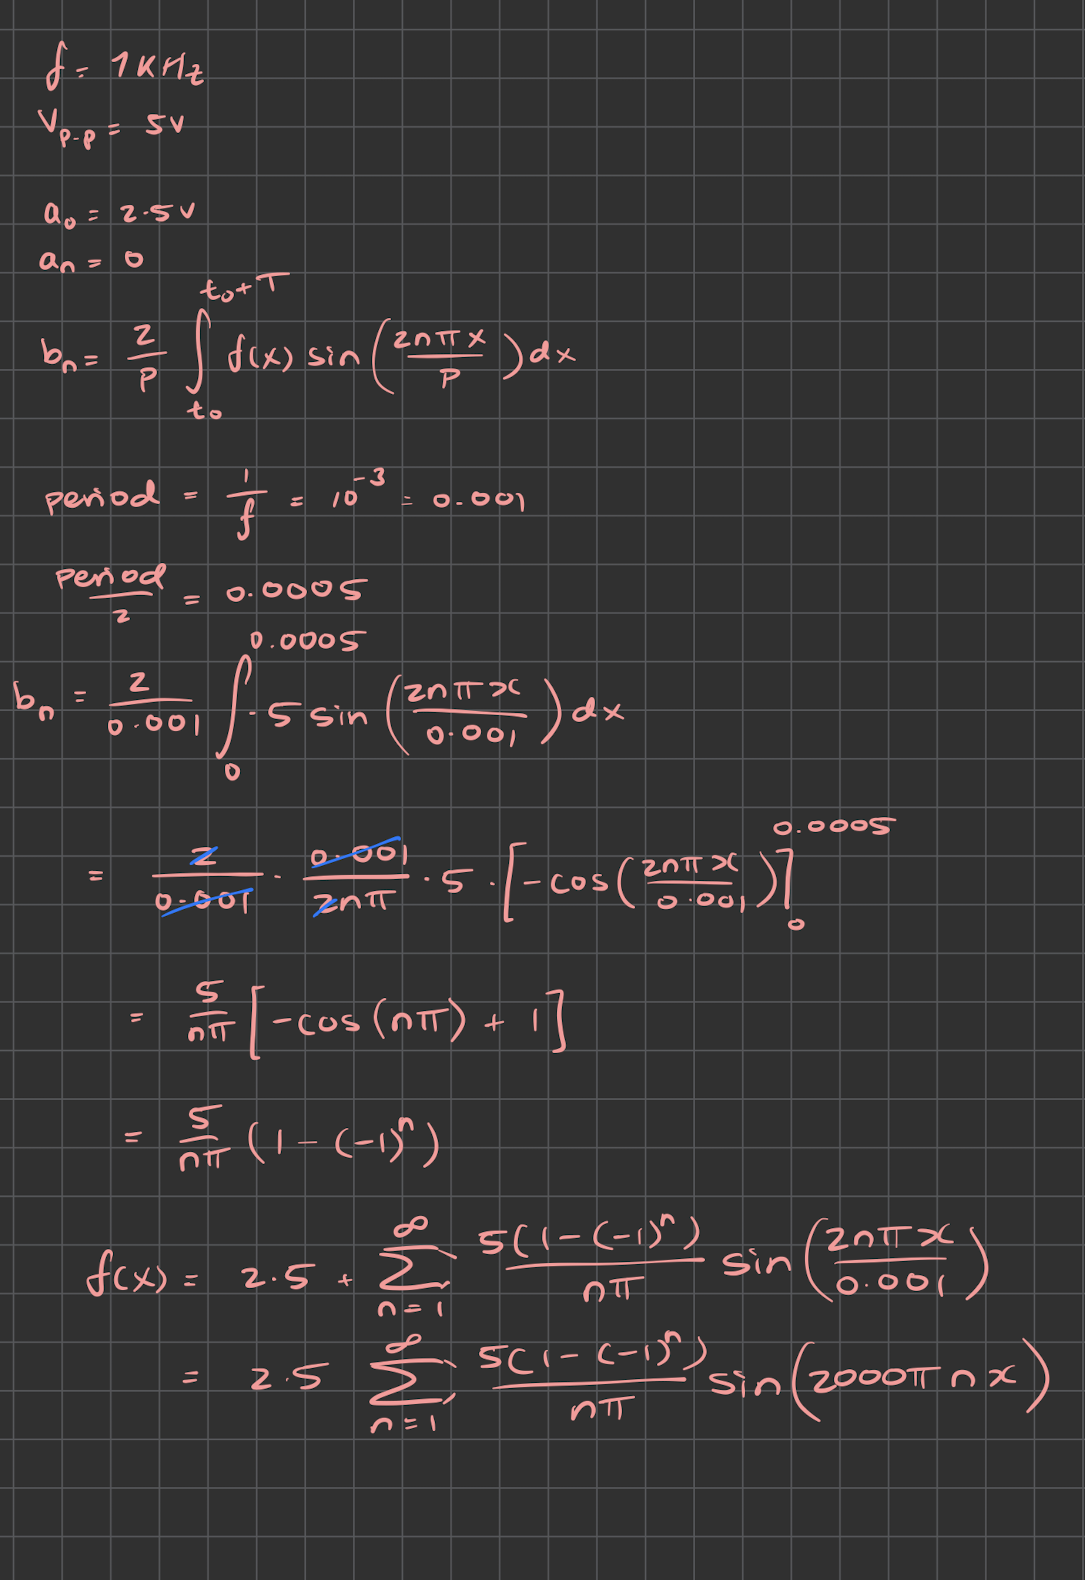 f = 1KHz
Vp-p = 5v
a₀ = 2.5v
aₙ = 0
bₙ = 2/P ∫_{t₀}^{t₀+T} f(x) sin(2nπx/P) dx
period = 1/f = 10⁻³ = 0.001
period/2 = 0.0005
bₙ = 2/0.001 ∫_{0}^{0.0005} 5 sin(2nπx/0.001) dx
= 2/0.001 · 0.001/2nπ · 5 · [-cos(2nπx/0.001)]_{0}^{0.0005}
= 5/nπ [-cos(nπ) + 1]
= 5/nπ (1-(-1)ⁿ)
f(x) = 2.5 + ∑_{n=1}^{∞} 5(1-(-1)ⁿ)/nπ sin(2nπx/0.001)
= 2.5 ∑_{n=1}^{∞} 5(1-(-1)ⁿ)/nπ sin(2000πnx)